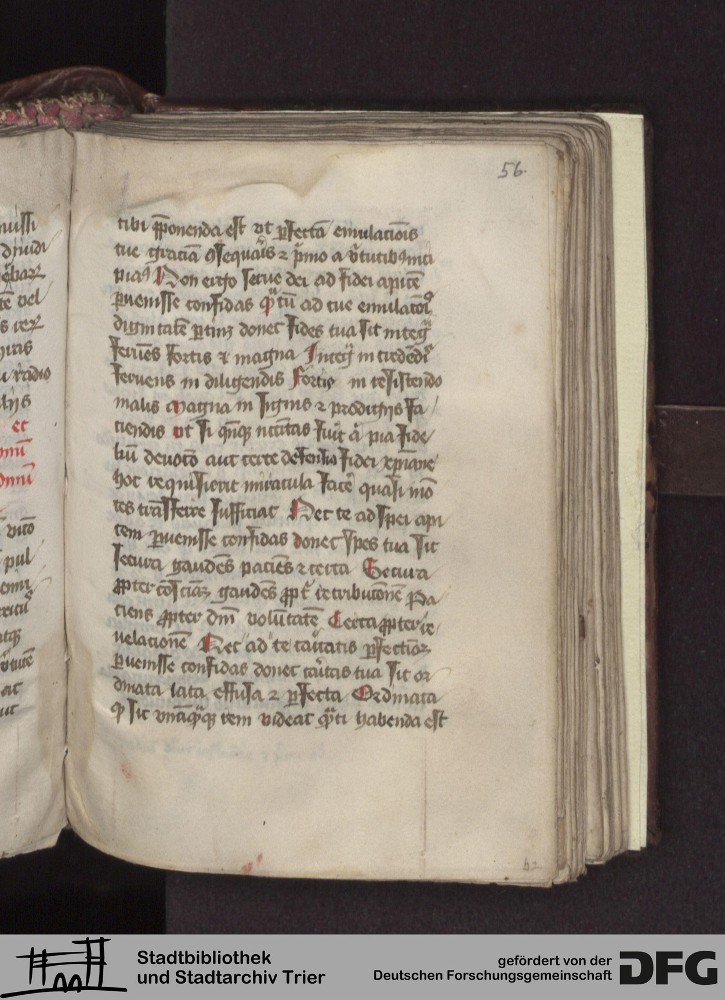 56.
tibi p̄ponenda est vt ꝑfectā emulacōis
tue graciā ꝯsequar̄is ⁊ p̄mo a v̄tutibꝫ inci
pias Non ergo serue dei ad fidei apicē
ꝑuenisse confidas qͣ tū ad tue emulacōis
dignitatē ꝑtinꝫ donec fides tua sit integͣ
feruēs fortis ⁊ magna Integͣ in credēdis
feruens in diligendis fortis in resistendo
malis Magna in signis ⁊ prodigijs fa /
ciendis vt si qn̄qꝫ necc̄itas fuīt a pia fide /
liū deuocō aut certe defensio fidei xp̄iane
hoc requisierit miracula facē quasi mō
tes trāsferre sufficiat Nec te ad spei api
cem ꝑuenisse confidas donec spes tua sit
secura gaudēs paciēs ⁊ certa Secura
ꝓpter cōsciaꝫ gaudēs ꝓpt̄ retribucōnē Pa
ciens ꝓpter dm̄ volūtatē Certa ꝓpter re
uelacionē Nec ad te caritatis ꝑfectioꝫ
ꝑuenisse confidas donec cāitas tua sit or
dinata lata effusa ⁊ ꝑfecta Ordinata
ꝙ sit vnāqͣqꝫ rem videat qͣti habenda est
Stadtbibliothek
und Stadtarchiv Trier
gefördert von der
Deutschen Forschungsgemeinschaft
DFG